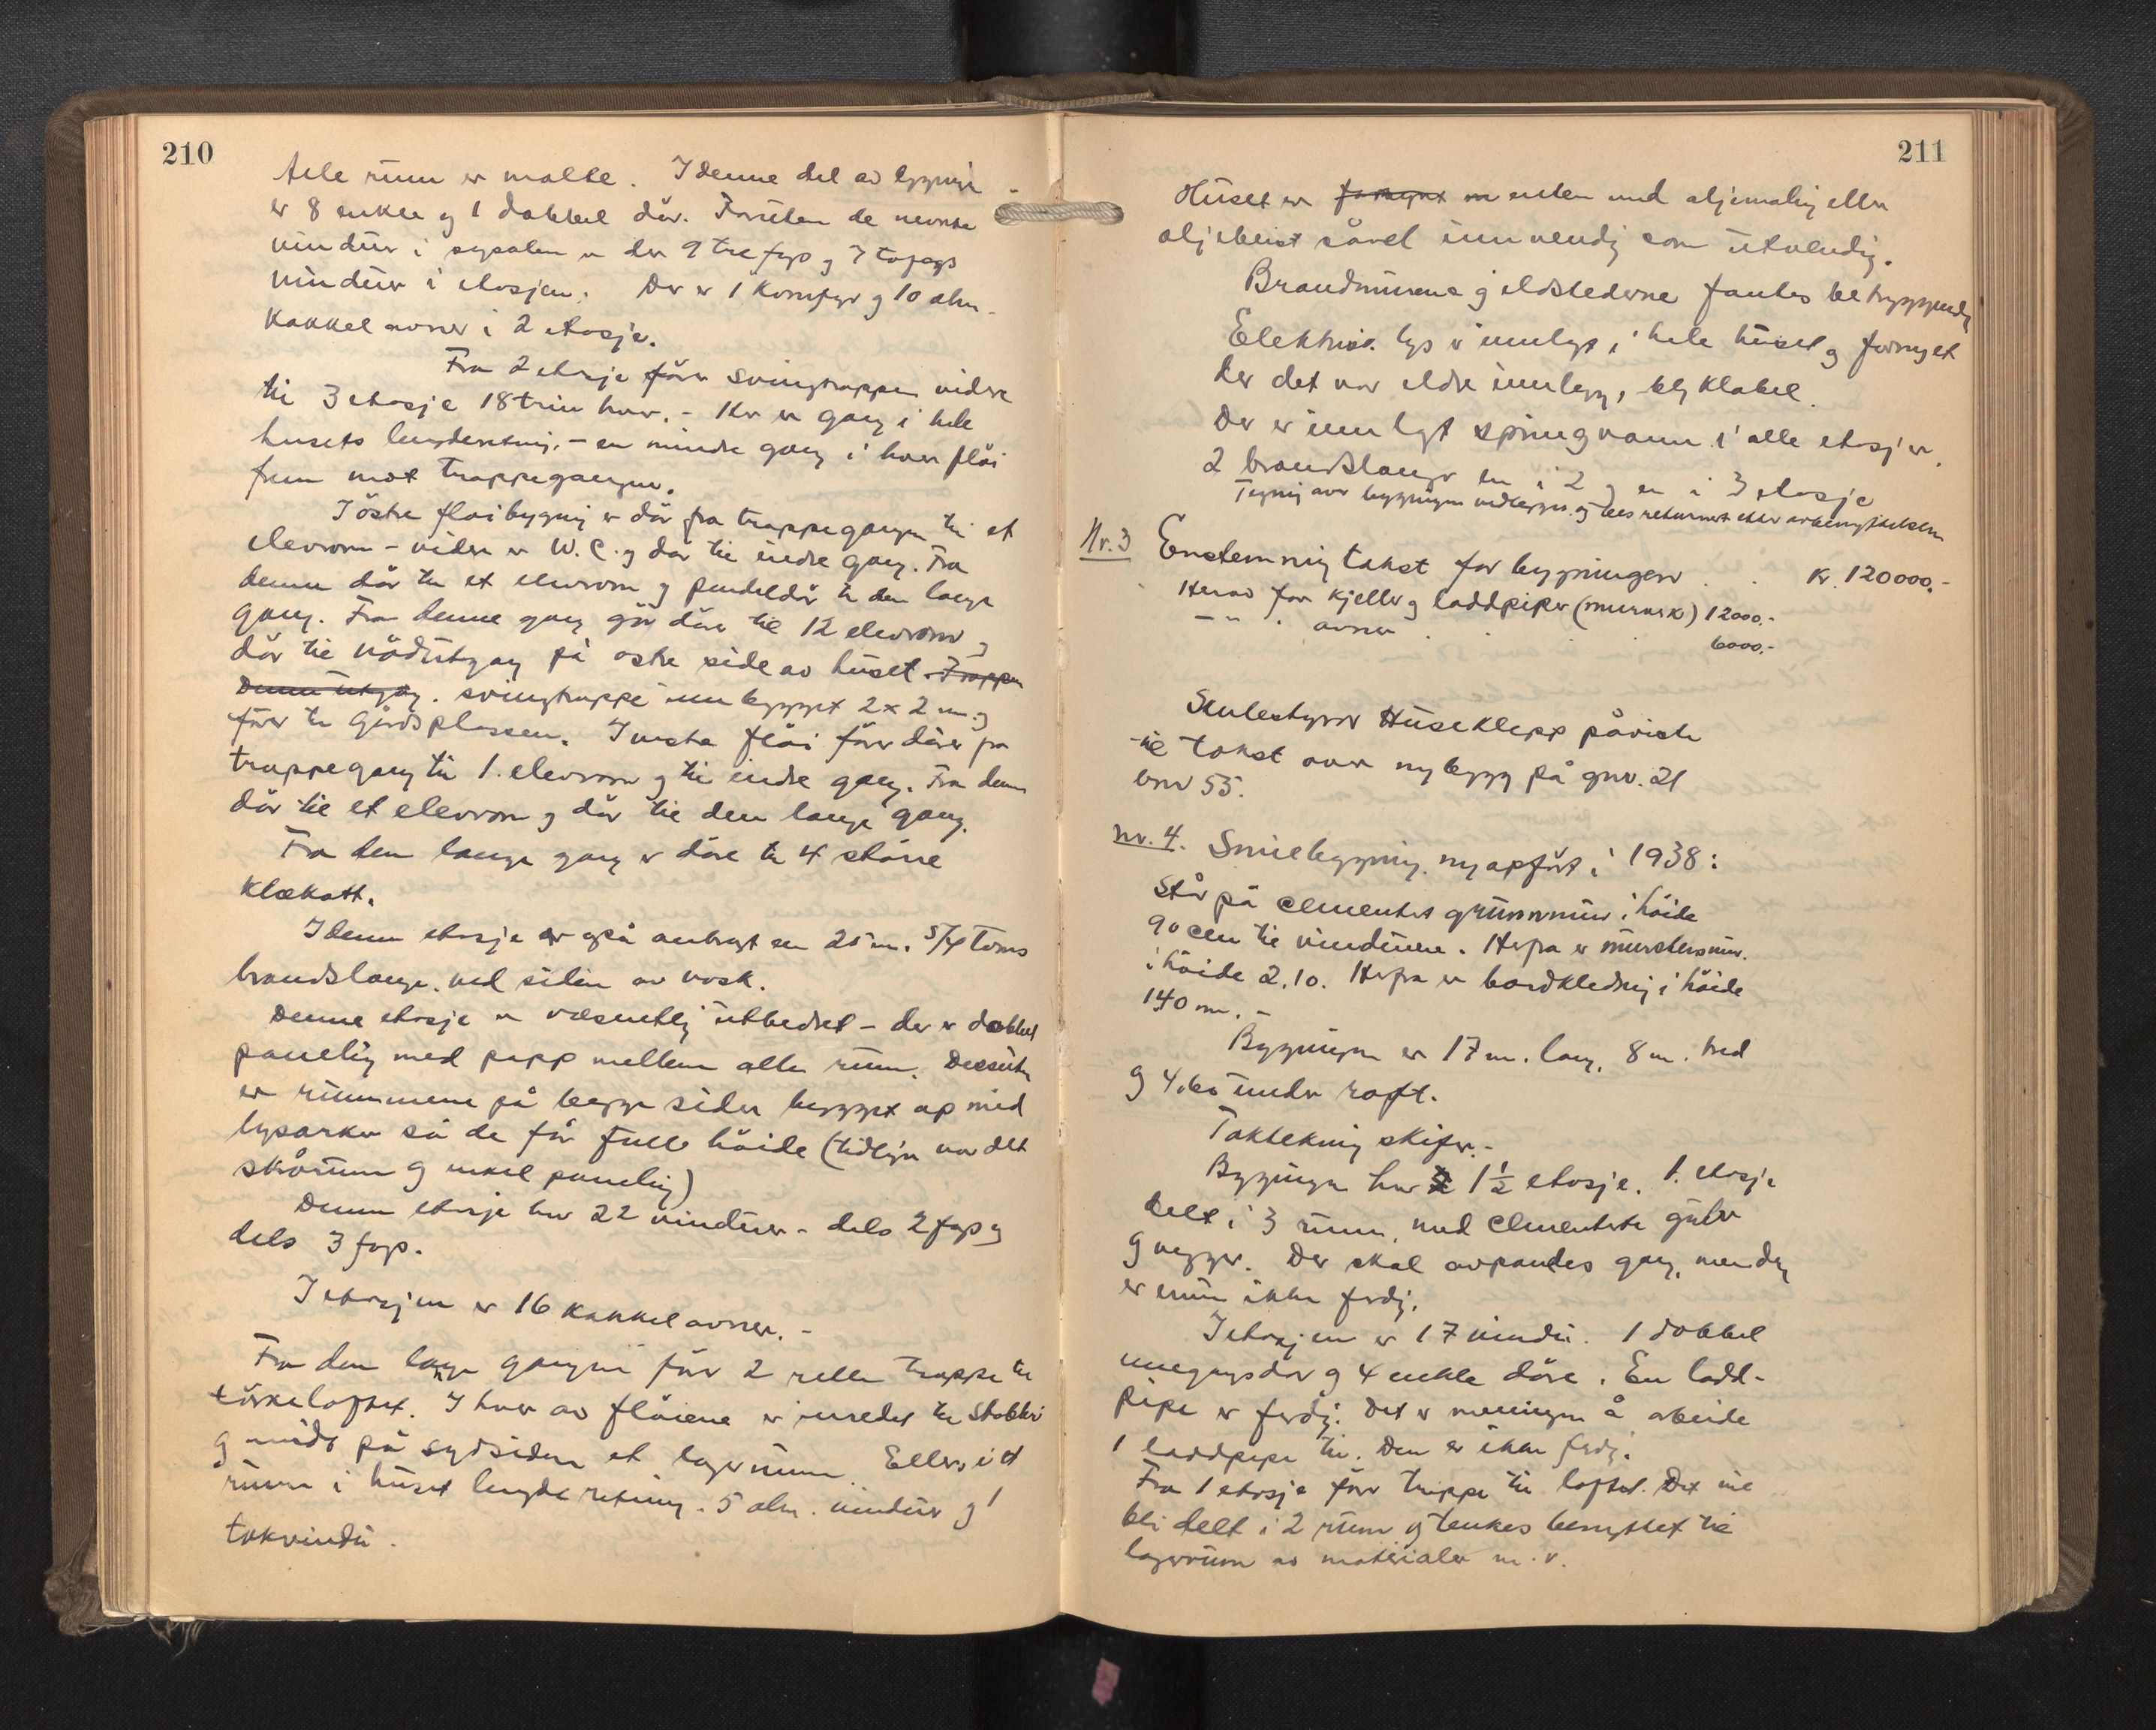 210
Alle rum er malte. I denne del av bygningen
er 8 enkle og 1 dobbel dør. Foruten de nevnte
vinduer i sysalen er der 9 trefags og 7 tofags
vinduer i etasjen. Der er 1 Komfyr og 10 alm.
Kakkelovner i 2 etasje.
Fra 2 etasje fører svingtrappen videre
til 3 etasje 18 trin hver. - Her er gang i hele
husets lengderetning, - en mindre gang i hver fløi
frem mot trappegangen.
I østre fløibygning er dør fra trappegangen til et
elevrom - videre er W.C. og dør til indre gang. Fra
denne dør til et elevrom og pendeldør til den lange
gang. Fra denne gang går døre til 12 elevrom og
dør til nødutgang på østre side av huset. Trappen
Denne utgang. svingtrappe innbygget 2 x 2 m. og
fører til Gårdsplassen. I vestre fløi fører døre fra
trappegang til 1. elevrom og til indre gang. Fra denne
dør til et elevrom og dør til den lange gang.
Fra den lange gang er døre til 4 større
klækott.
I denne etasje er også anbragt en 25 m. 5/4 Toms
brandslange. ved siden av vask.
Denne etasje er væsentlig utbedret - der er dobbel
paneling med papp mellem alle rum. Dessuten
er rummene på begge sider bygget op med
lysarker så de får full høide (tidligere var det
skårum og enkel paneling)
Denne etasje har 22 vinduer - dels 2 fags og
dels 3 fags.
I etasjen er 16 kakkelovner. -
Fra den lange gangen før 2 rette trappe til
tørkeloftet. I hver av fløiene er innredet til Stabbur
og midt på sydsiden et lagerrum. Ellers i et
rum i huset lengderetning. 5 alm. vinduer og 1
takvindu.
211
Huset er fornyet m enten med oljemaling eller
oljebeist såvel innvendig som utvendig.
Brandmurene og ildstederne fantes betryggende
Elektrisk lys er innlagt i hele huset og fornyet
der det var eldre innlegg, blykabel.
Der er innlagt springvann i alle etasjer.
2 brandslanger en i 2 og en i 3 etasje
Tegning over bygningen vedlegges og bes returnert etter avbenyttelsen
Nr. 3 Enstemmig takst for bygningen . . Kr. 120000.-
Herav for Kjeller og laddpiper (murverk) 12000.-
- " - . ovner . . 6000.-
Skulestyrer Huseklepp påviste
til takst over nybygg på gnr. 21
bnr 55.
nr. 4. Smiebygning. nyopført i 1938:
Står på cementert grunnmur i høide
90 cm til vinduene. Herfra er murstensmur.
i høide 2.10. Herfra er bordkledning i høide
140 m. -
Bygningen er 17 m. lang, 8 m. bred
og 4.60 under raft.
Taktekning skifer. -
Bygningen har 2 1 1/2 etasje. 1. etasje
delt i 3 rum, med cementerte gulv
og vegger. Der skal avpandes gang, men den
er ennu ikke ferdig.
I etasjen er 17 vindu. 1 dobbel
inngangsdør og 4 enkle døre. En ladd-
pipe er ferdig. Det er meningen å arbeide
1 laddpipe til. Den er ikke ferdig.
Fra 1 etasje fører trappe til loftet. Det vil
bli delt i 2 rum og tenkes benyttet til
lagerrum av materialer m. v.